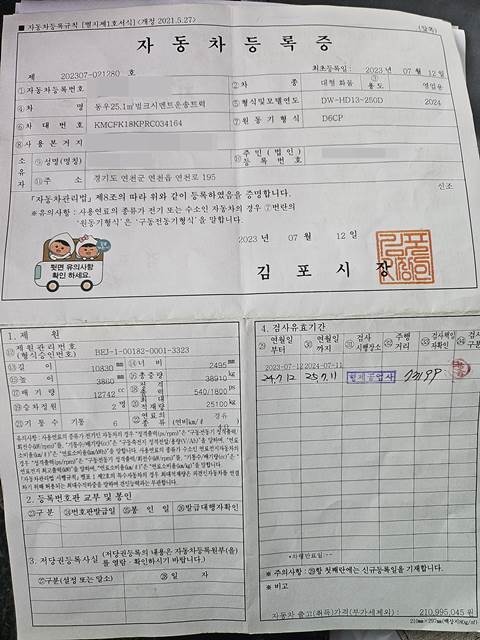 ■ 자동차등록규칙 [별지제1호서식] <개정 2021.5.27>
(앞쪽)
자 동 차 등 록 증
제 202307-021280 호
최초등록일 : 2023 년 07 월 12 일
①자동차등록번호
② 차 종 대형 화물 ③ 용도 영업용
④ 차 명 동우25.1㎥벌크시멘트운송트럭
⑤ 형식및모델연도 DW-HD13-250D 2024
⑥ 차 대 번 호 KMCFK18KPRC034164
⑦ 원 동 기 형 식 D6CP
⑧ 사 용 본 거 지
소유자
⑨ 성명(명칭)
⑩ 주민(법인)등록번호
⑪ 주 소 경기도 연천군 연천읍 연천로 195
「자동차관리법」제8조의 따라 위와 같이 등록하였음을 증명합니다.
신조
※유의사항 : 사용연료의 종류가 전기 또는 수소인 자동차의 경우 ⑦번란의
'원동기형식'은 '구동전동기형식'을 말합니다.
2023 년 07 월 12 일
뒷면 유의사항
확인 하세요.
김 포 시 장
1. 제 원
⑫ 제원관리번호 (형식승인번호) BEJ-1-00182-0001-3323
⑬ 길 이 10830 mm ⑭ 너 비 2495 mm
⑮ 높 이 3860 mm ⑯ 총중량 38910 kg
⑰ 배 기 량 12742 cc ⑱ 정격출력 540/1800 ps
⑲ 승차정원 2 명 ⑳ 최대적재량 25100 kg
㉑ 기 통 수 기통 6 ㉒ 연료의종류 경유
(연비 km/ℓ)
2. 등록번호판 교부 및 봉인
㉓구 분 ㉔번호판발급일 ㉕봉 인 일 ㉖발급대행자확인
3. 저당권등록사실 (저당권등록의 내용은 자동차등록원부(을)
를 열람 · 확인하시기 바랍니다.)
㉗구분(설정 또는 말소) ㉘ 일 자
4. 검사유효기간
㉙ 연월일부터 ㉚ 연월일까지 ㉛ 검사시행장소 ㉜ 주행거리 ㉝ 검사책임자확인 ㉞ 검사구분
2023-07-12 2024-07-11
24.7.12 25.7.11
*차령만료일:--
※ 주의사항 : ㉙항 첫째란에는 신규등록일을 기재합니다.
※ 비고
자동차 출고(취득)가격(부가세제외) : 210,995,045 원
210㎜×297㎜(백상지80g/㎡)